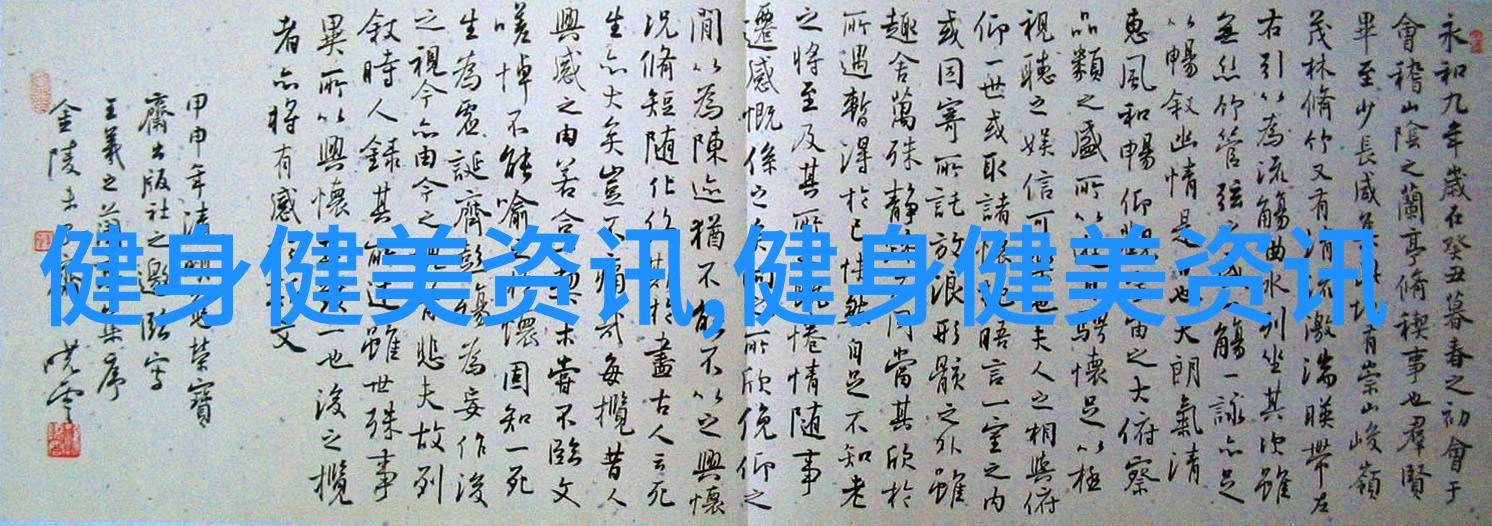 永和九年歲在癸丑暮春之初會于
會稽山陰之蘭亭脩稧事也羣賢
畢至少長咸集此地有崇山峻嶺
茂林脩竹又有清流激湍暎帶左
右引以為流觴曲水列坐其次雖
無絲竹管弦之盛一觴一詠亦足
以暢叙幽情是日也天朗氣清
惠風和暢仰觀宇宙之大俯察
品類之盛所以遊目騁懷足以極
視聽之娛信可樂也夫人之相與俯
仰一世或取諸懷抱晤言一室之內
或因寄所託放浪形骸之外雖
趣舍萬殊靜躁不同當其欣於
所遇暫得於己快然自足不知老
之將至及其所之既惓情随事
遷感慨係之矣向之所欣俛仰之
間以為陳迹猶不能不以之興懷
况脩短随化終期於盡古人云死
生亦大矣豈不痛哉每攬昔人
興感之由若合一契未嘗不臨文
嗟悼不能喻之於懷固知一死
生為虛誕齊彭殤為妄作後
之視今亦由今之視昔悲夫故列
叙時人錄其所述雖世殊事
異所以興懷其致一也後之攬
者亦將有感於斯文
甲申年清明 榮寶
齋出版社之邀 寫
王羲之蘭亭集序
金陵 齋 曉雲
健身健美资讯,健身健美资讯